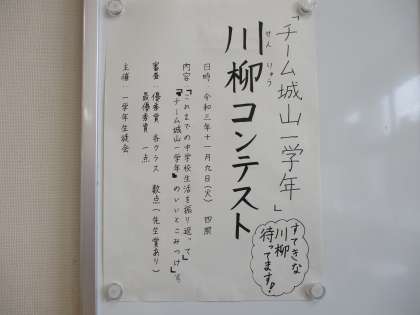 「チーム城山一学年」
せんりゅう
川柳コンテスト
すてきな
川柳
待ってます!
日時:令和三年十一月九日(火) 四限
内容:「これまでの中学校生活を振り返って」
「『チーム城山一学年』のいいとこみつけ」
審査:優秀賞 各クラス 数点(先生賞あり)
最優秀賞 一点
主催:一学年生徒会